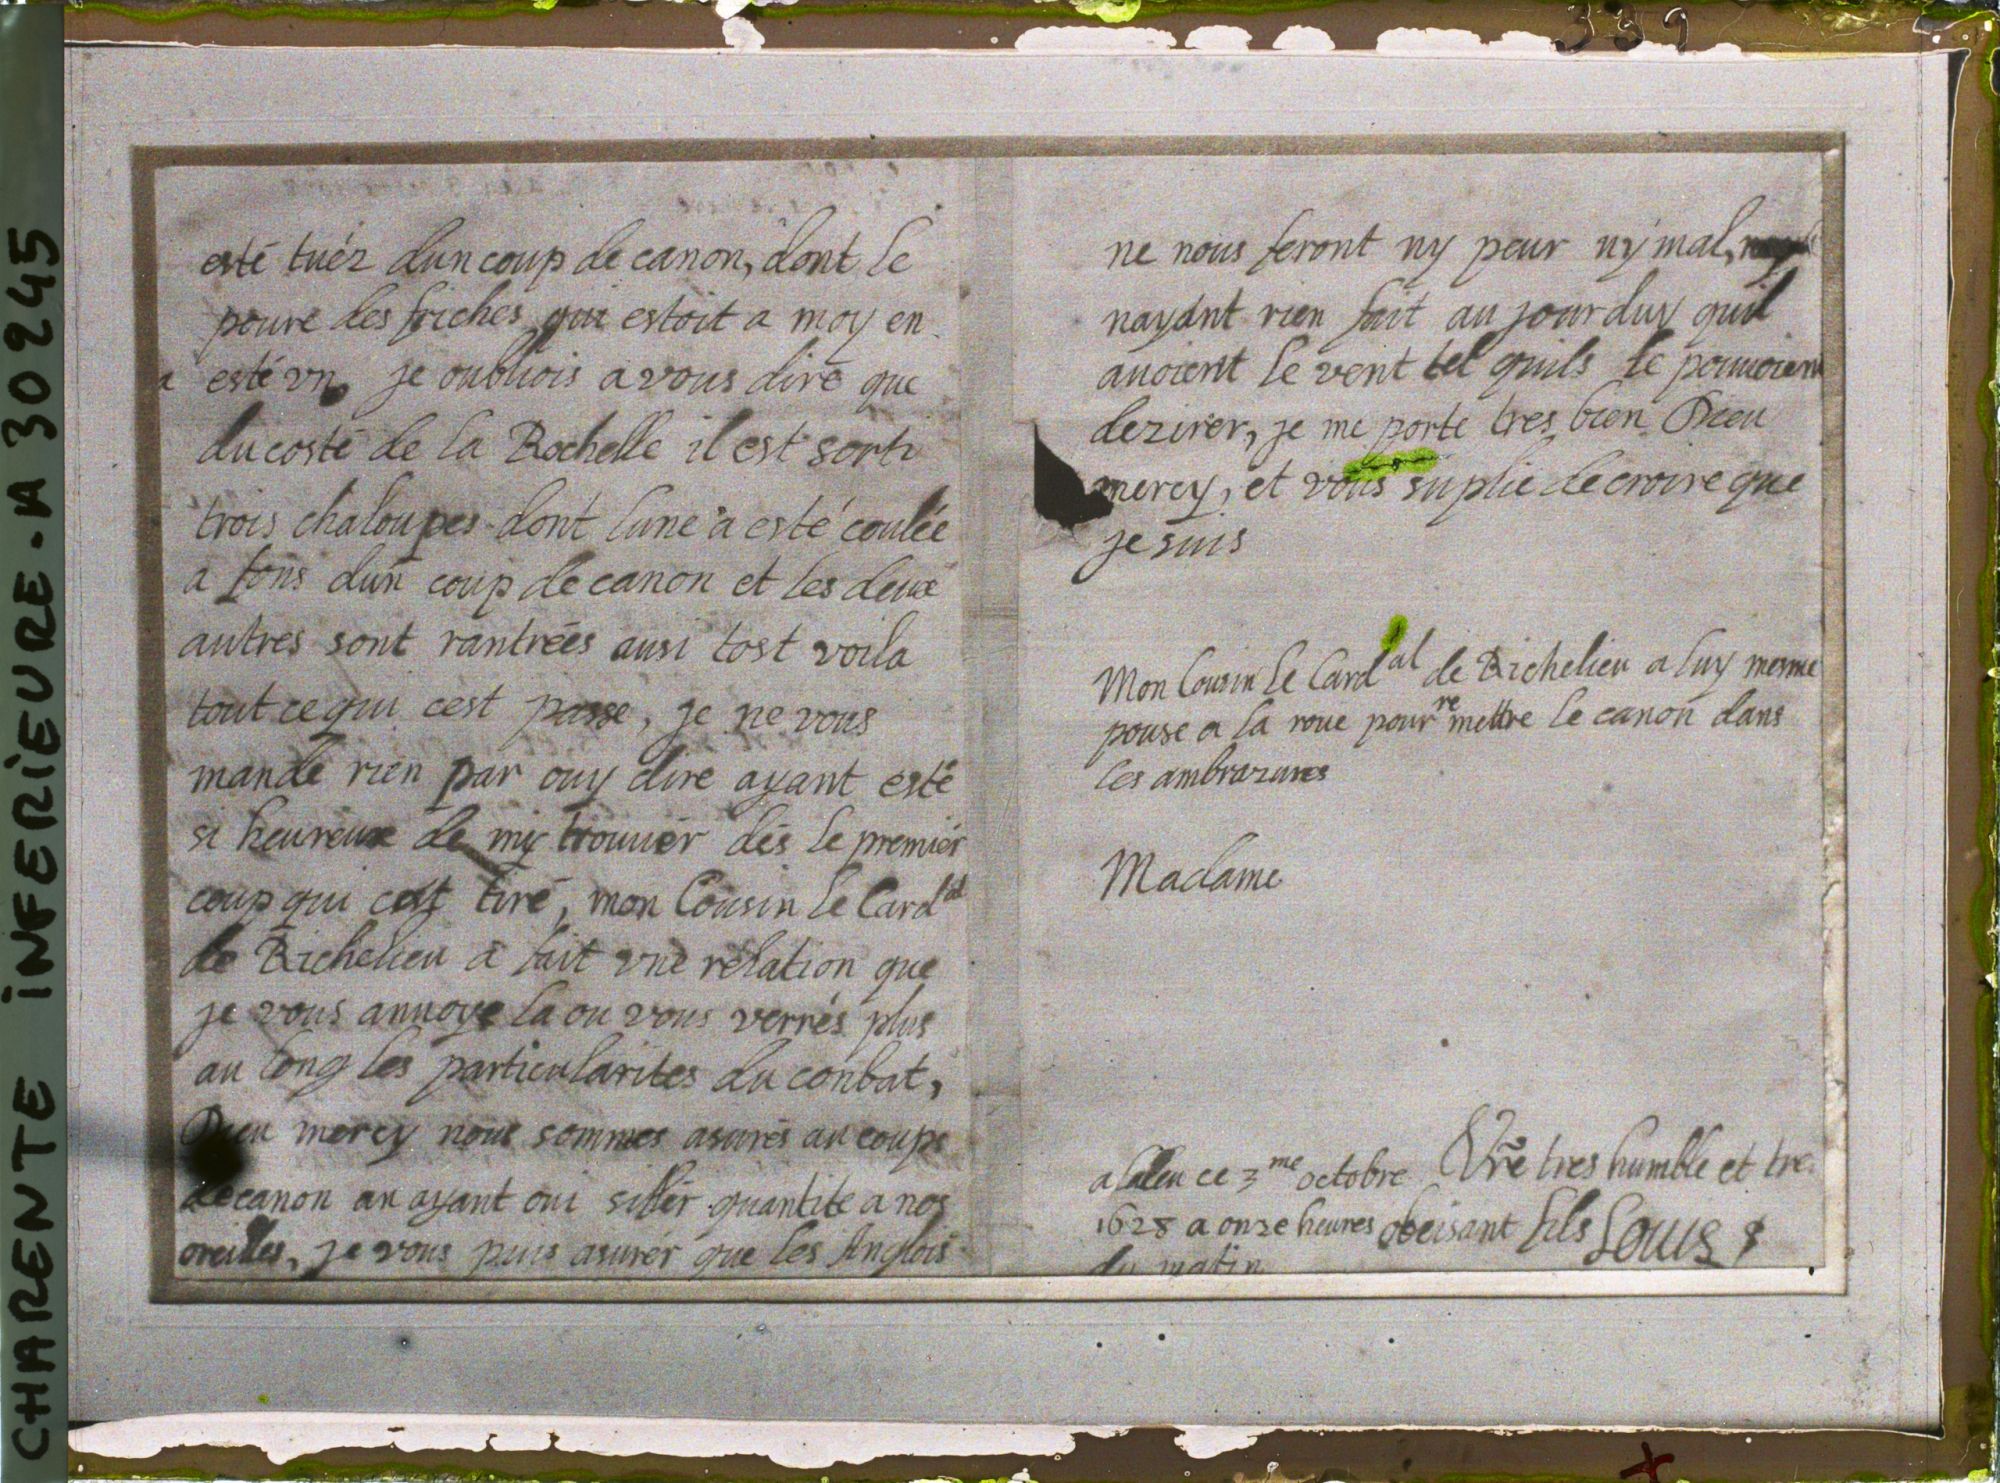 CHARENTE INFERIEURE. A 30 245
339
esté tuéz dun coup de canon, dont le
poure des friches qui estoit a moy en
a esté vn, je oubliois a vous dire que
du costé de la Rochelle il est sorti
trois chaloupes dont lune a esté coulée
a fons dun coup de canon et les deux
autres sont rantrées ausi tost voila
tout ce qui cest passe, je ne vous
mande rien par ouy dire ayant esté
si heureux de my trouuer dés le premier
coup qui cest tiré, mon Cousin le Card al
de Richelieu a fait vne relation que
je vous annoye la ou vous verrés plus
au long les particularites du conbat,
Dieu mercy nous sommes asurés au coups
de canon an ayant oui sifler quantite a nos
oreilles, je vous puis asurer que les Anglois
ne nous feront ny peur ny mal,
nayant rien fait aujourduy quil
auoient le vent tel quils le pouuoient
dezirer, je me porte tres bien Dieu
mercy, et vous suplie de croire que
je suis
Mon Cousin le Card al de Richelieu a luy mesme
pouse a la roue pour remettre le canon dans
les ambrazures
Madame
a laleu ce 3me octobre Vre tres humble et tres
1628 a onze heures obeisant fils Louis
du matin